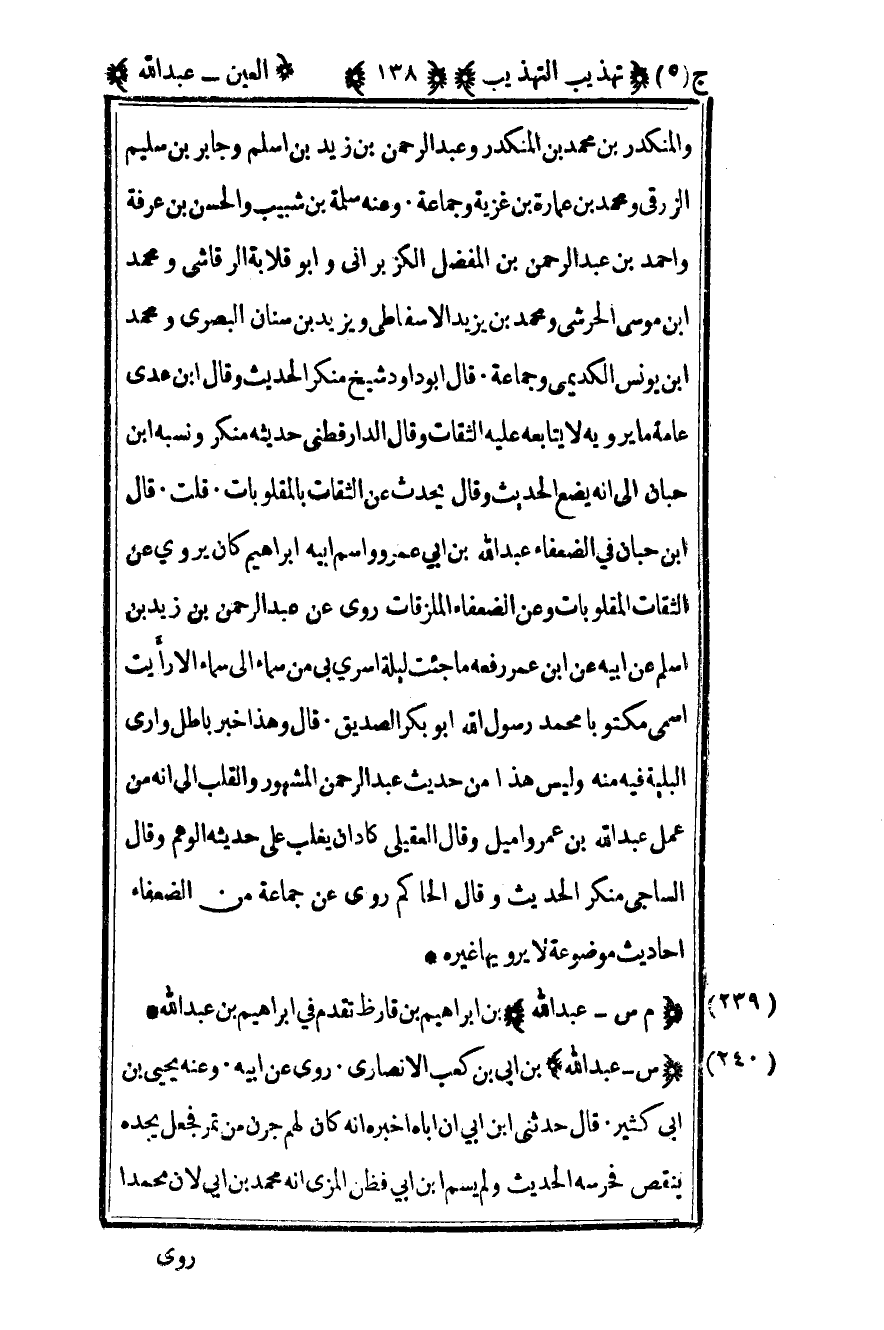 ج(٥) ﴿ تهذيب التهذيب ﴾ ﴿ ١٣٨ ﴾ ﴿ العين - عبدالله ﴾
والمنكدر بن محمد بن المنكدر وعبدالرحمن بن زيد بن اسلم وجابر بن سليم
الزرقى ومحمد بن عمارة بن غزية وجماعة · وعنه سلمة بن شبيب والحسن بن عرفة
واحمد بن عبدالرحمن بن المفضل الكزبرانى وابو قلابة الرقاشى ومحمد
ابن موسى الحرشى ومحمد بن يزيد الاسفاطى ويزيد بن سنان البصرى ومحمد
ابن يونس الكديمى وجماعة · قال ابوداود شيخ منكر الحديث وقال ابن عدى
عامة ما يرويه لا يتابعه عليه الثقات وقال الدارقطنى حديثه منكر ونسبه ابن
حبان الى انه يضع الحديث وقال يحدث عن الثقات بالمقلوبات · قلت · قال
ابن حبان في الضعفاء عبدالله بن ابي عمرو واسم ابيه ابراهيم كان يروي عن
الثقات المقلوبات وعن الضعفاء الملزقات روى عن عبدالرحمن بن زيد بن
اسلم عن ابيه عن ابن عمر رفعه ما جئت ليلة اسري بي من سماء الى سماء الا رأيت
اسمى مكتوبا محمد رسول الله ابو بكر الصديق · قال وهذا خبر باطل وارى
البلية فيه منه وليس هذا من حديث عبدالرحمن المشهور والقلب الى انه من
عمل عبدالله بن عمرو اميل وقال العقيلى كاد ان يغلب على حديثه الوهم وقال
الساجى منكر الحديث وقال الحاكم روى عن جماعة من الضعفاء
احاديث موضوعة لا يرويها غيره *
(٢٣٩) ﴿ م س - عبدالله ﴾ بن ابراهيم بن قارظ تقدم في ابراهيم بن عبدالله *
(٢٤٠) ﴿ س - عبدالله ﴾ بن ابي بن كعب الانصارى · روى عن ابيه · وعنه يحيى بن
ابى كثير · قال حدثنى ابن ابي ان اباه اخبره انه كان لهم جرن من تمر فجعل يجده
ينقص فحرسه الحديث ولم يسم ابن ابي فظن المزى انه محمد بن ابي لان محمدا
روى